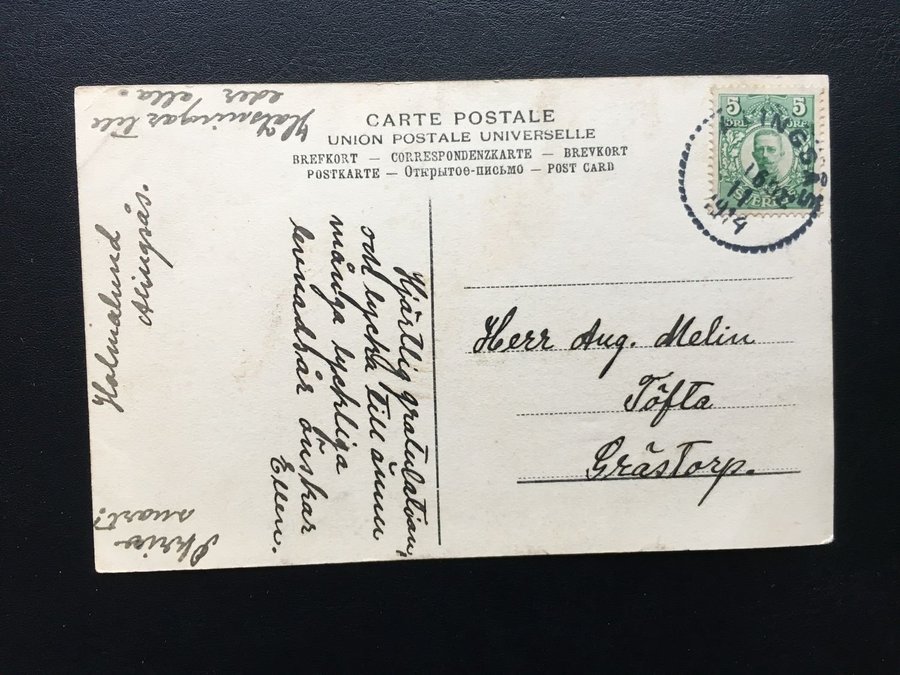 CARTE POSTALE
UNION POSTALE UNIVERSELLE
BREFKORT — CORRESPONDENZKARTE — BREVKORT
POSTKARTE — Открытое-письмо — POST CARD
5 5
ÖRE ÖRE
SVERIGE
ALINGSÅS
11
1914
Herr Aug. Melin
Töfta
Grästorp.
Hjärtlig gratulation,
och lycka till ännu
många lyckliga
levnadsår önskar
Ellen.
Holmalund
Alingsås.
Hälsningar till
eder alla.
Skriv
snart!